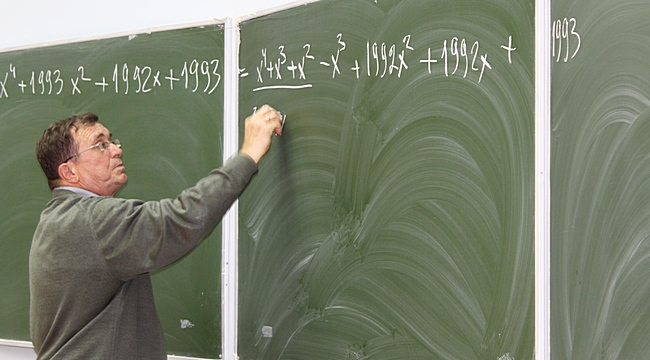 x⁴ + 1993 x² + 1992x + 1993 = x⁴ + x³ + x² - x³ + 1992x² + 1992x + 1993